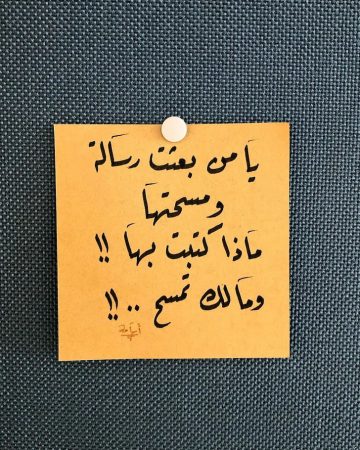 يَا من بعثت رسَالة
ومسحتهَا
مَاذا كتبت بهَا !!
ومَا لك تمسح .. !!
أسَامة